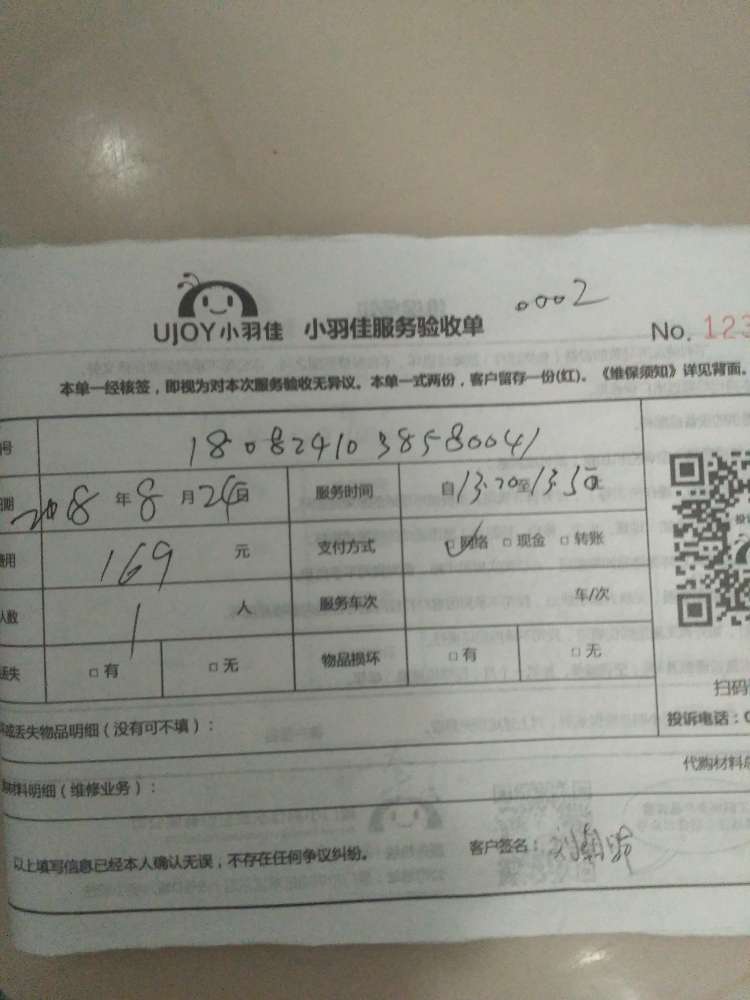 0002
UJOY小羽佳 小羽佳服务验收单 No. 123
本单一经核签，即视为对本次服务验收无异议。本单一式两份，客户留存一份(红)。《维保须知》详见背面。
号 1808241038580041
日期 2018 年 8 月 24 日 服务时间 自 13:20 至 13:50 止
费用 169 元 支付方式 ☑网络 □现金 □转账
人数 1 人 服务车次 车/次
丢失 □有 □无 物品损坏 □有 □无
扫码
或丢失物品明细（没有可不填）： 投诉电话：0
代购材料总
材料明细（维修业务）：
以上填写信息已经本人确认无误，不存在任何争议纠纷。 客户签名：